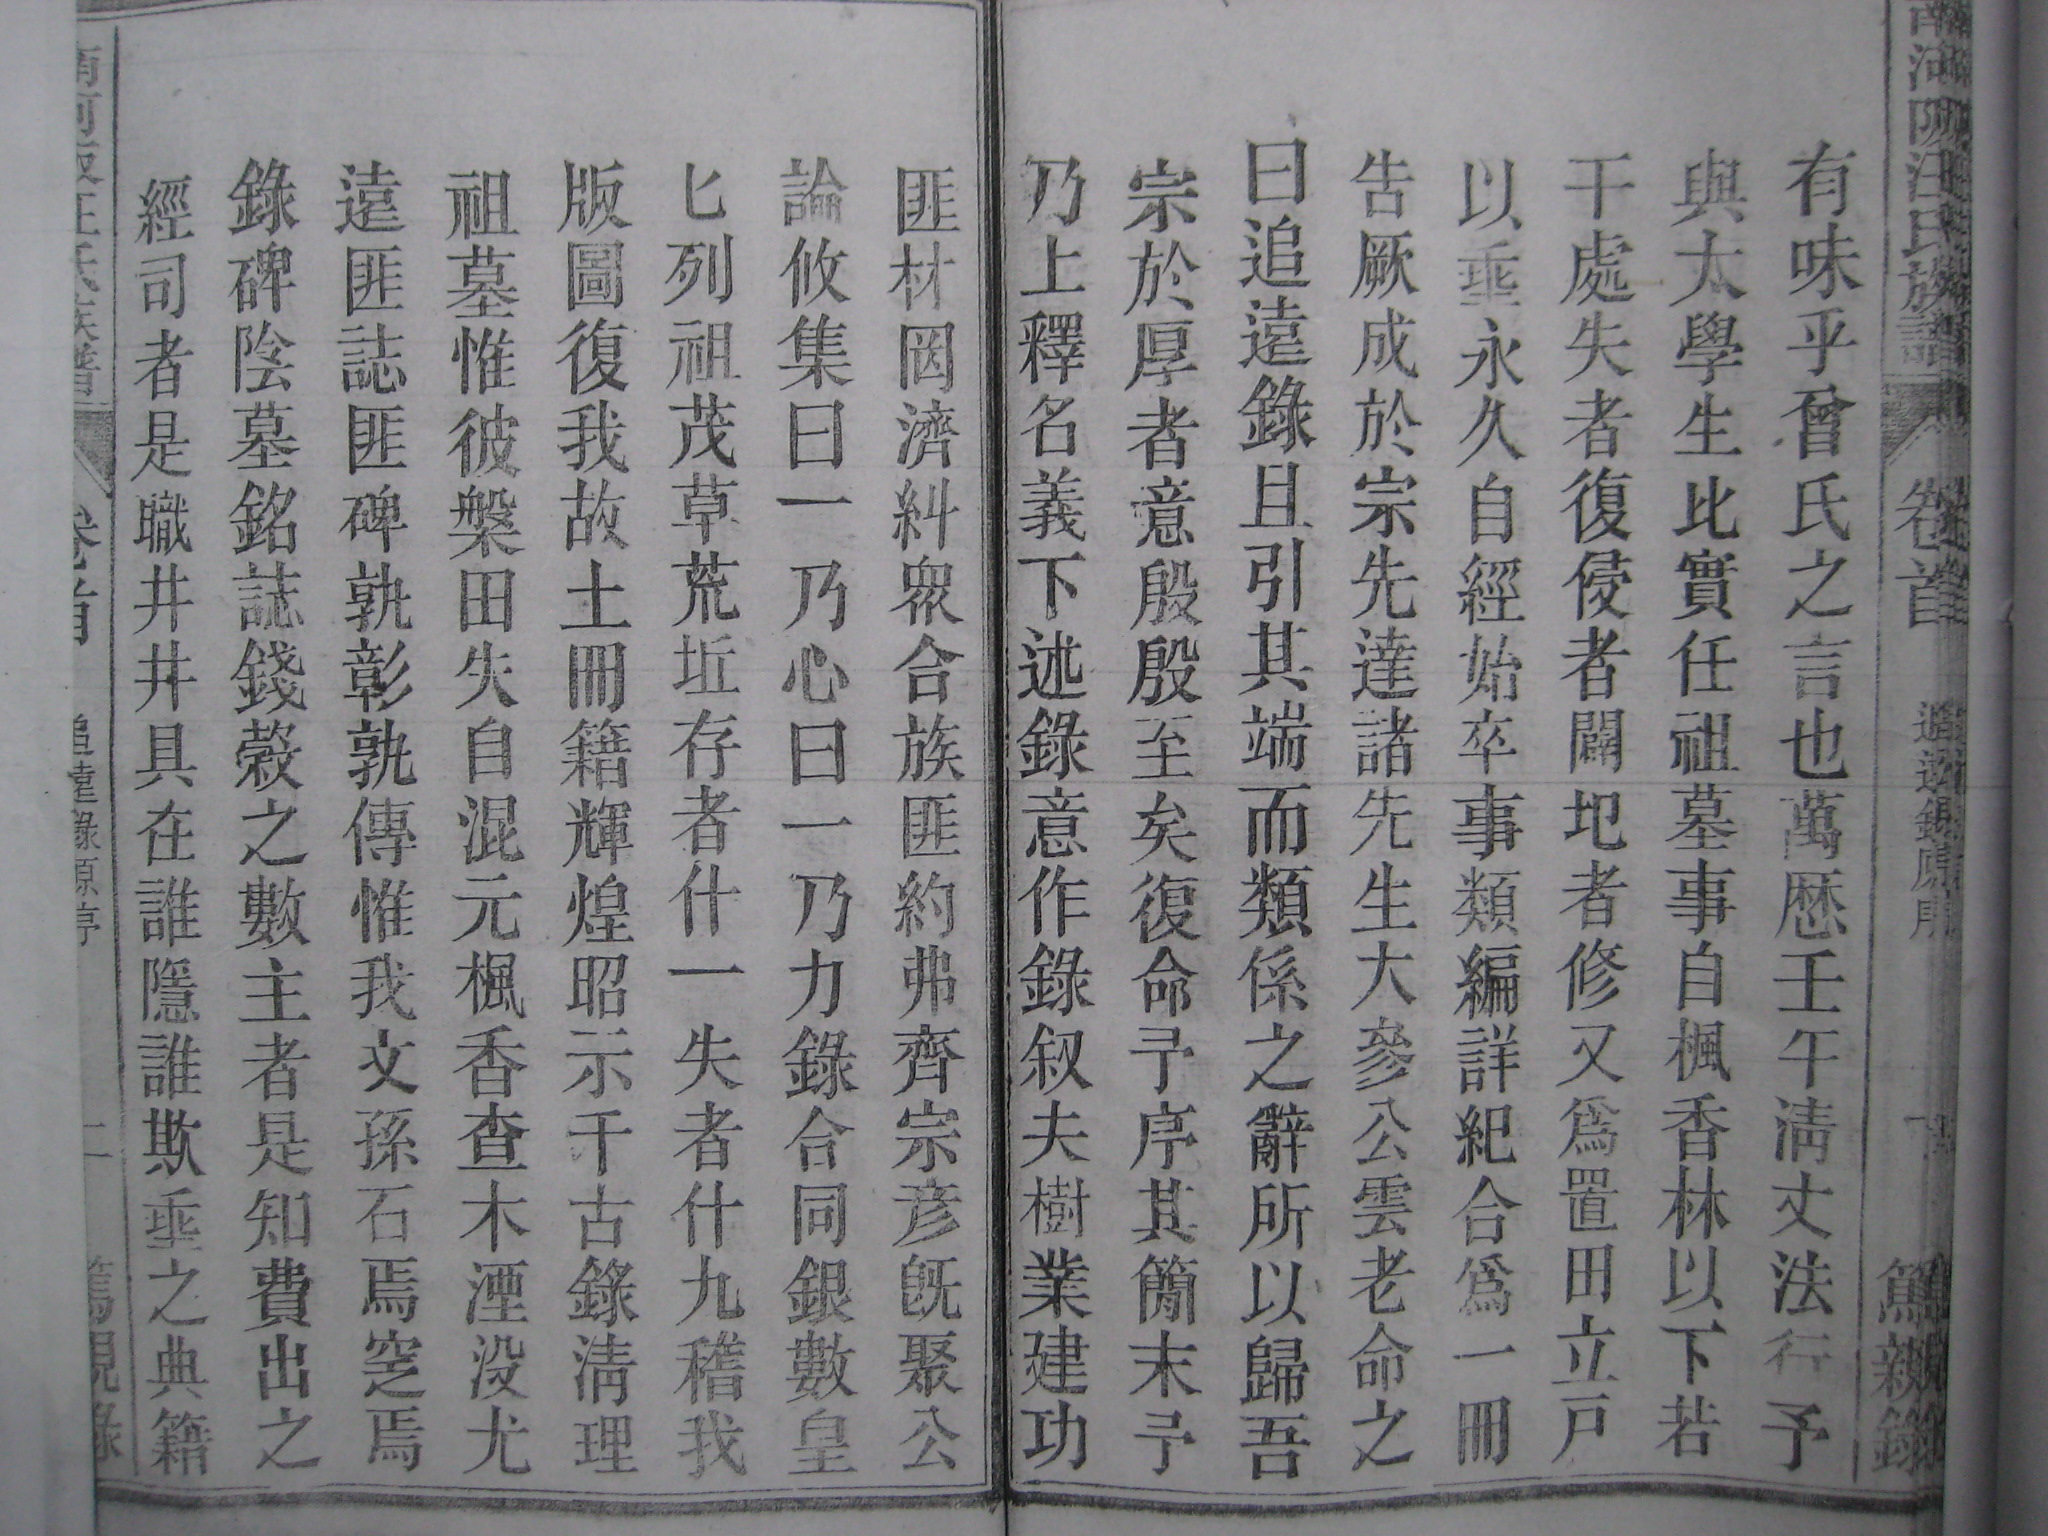 南河陂汪氏族譜 卷首 追遠錄原序 篤親錄
有味乎曾氏之言也萬歷壬午淸丈法行予
與太學生比實任祖墓事自楓香林以下若
干處失者復侵者闢圯者修又爲置田立戸
以埀永久自經始卒事類編詳紀合爲一冊
告厥成於宗先達諸先生大參公雲老命之
曰追遠錄且引其端而類係之辭所以歸吾
宗於厚者意殷殷至矣復命予序其簡末予
乃上釋名義下述錄意作錄叙夫樹業建功
匪材罔濟糾衆合族匪約弗齊宗彦旣聚公
論攸集曰一乃心曰一乃力錄合同銀數皇
匕列祖茂草荒坵存者什一失者什九稽我
版圖復我故土冊籍輝煌昭示千古錄淸理
祖墓惟彼槃田失自混元楓香查木湮没尤
遠匪誌匪碑孰彰孰傳惟我文孫石焉窆焉
錄碑陰墓銘誌錢穀之數主者是知費出之
經司者是職井井具在誰隱誰欺埀之典籍
南河陂汪氏族譜 卷首 追遠錄原序 二 篤親錄